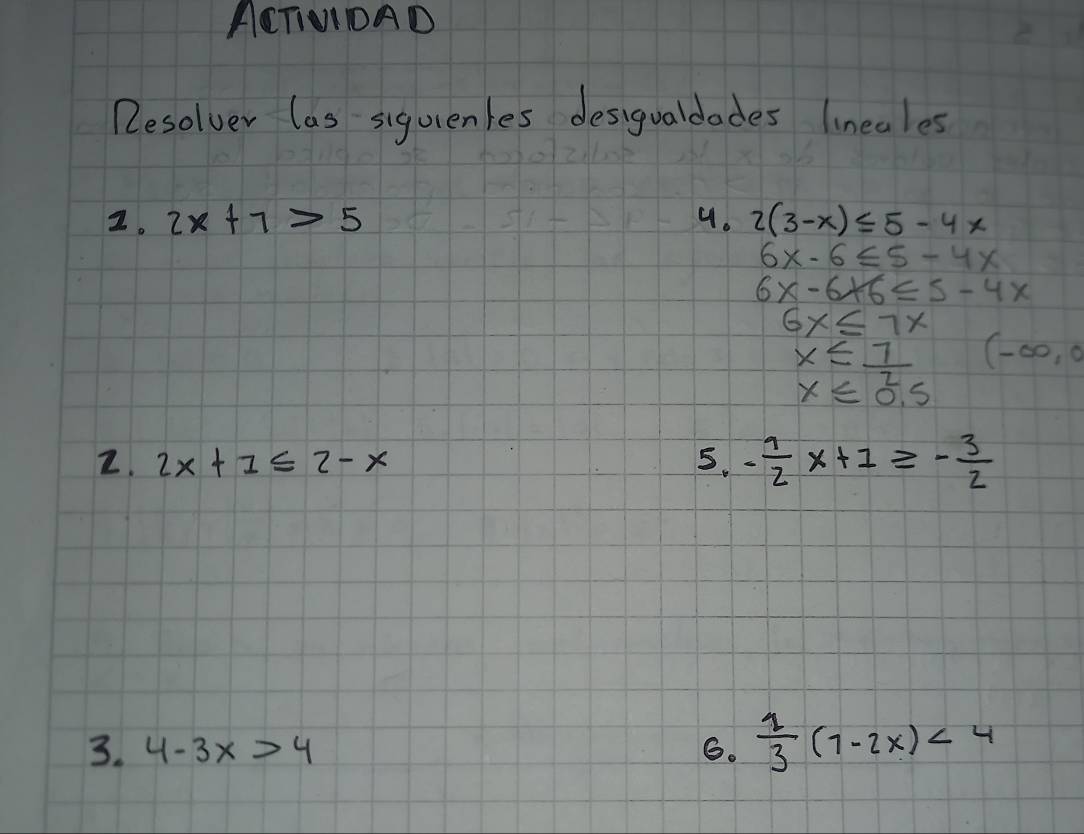 ACTIVIDAD
Resolver las siguientes desigualdades lineales
1. 2x + 7 > 5
4. 2(3-x) ≤ 5 - 4x
6x - 6 ≤ 5 - 4x
6x - 6 + 6 ≤ 5 - 4x
6x ≤ 7x
x ≤ 1/2 (-∞, 0
x ≤ 0.5
2. 2x + 1 ≤ 2 - x
5. -1/2 x + 1 ≥ -3/2
3. 4 - 3x > 4
6. 1/3 (1 - 2x) < 4